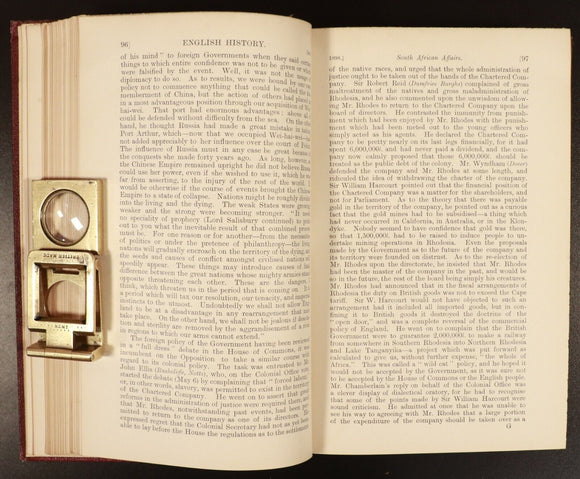 96] ENGLISH HISTORY.
of his mind" to foreign Governments when they said certain
things to which entire confidence was not to be given or which
were falsified by the event. Well, it was not the usage of
diplomacy to do so. As to results, we were bound by our
policy not to commence anything that could be called the dis-
memberment of China, but the action of others had placed us
in a most advantageous position through our acquisition of Wei-
hai-wei. That port had enormous advantages: above all, it
could be defended without difficulty from the sea. On the other
hand, he thought Russia had made a great mistake in taking
Port Arthur, which—now that we occupied Wei-hai-wei—had
not added appreciably to her influence over the court of Pekin.
The influence of Russia must in any case be great because of
the conquests she made forty years ago. As long, however, as
the Chinese Empire remained upright he did not believe Russia
could use her power, even if she wished to use it, which he was
far from asserting, to the injury of the rest of the world. It
would be otherwise if the course of events brought the Chinese
Empire to a state of collapse. Nations might be roughly divided
into the living and the dying. The weak States were growing
weaker and the strong were becoming stronger. "It needs
no speciality of prophecy (Lord Salisbury continued) to point
out to you what the inevitable result of that combined process
must be. For one reason or for another—from the necessities
of politics or under the pretence of philanthropy—the living
nations will gradually encroach on the territory of the dying, and
the seeds and causes of conflict amongst civilised nations will
speedily appear. These things may introduce causes of fatal
difference between the great nations whose mighty armies stand
opposite threatening each other. These are the dangers, I
think, which threaten us in the period that is coming on. It is
a period which will tax our resolution, our tenacity, and imperial
instincts to the utmost. Undoubtedly we shall not allow Eng-
land to be at a disadvantage in any rearrangement that may
take place. On the other hand, we shall not be jealous if desola-
tion and sterility are removed by the aggrandisement of a rival
in regions to which our arms cannot extend."
The foreign policy of the Government having been reviewed
in a "full dress" debate in the House of Commons, it was
incumbent on the Opposition to take a similar course with
regard to its colonial policy. The task was entrusted to Mr.
John Ellis (Rushcliffe, Notts), who, on the Colonial Office vote,
started the debate (May 6) by complaining that "forced labour,"
or, in other words, slavery, was permitted to exist in the territory
of the Chartered Company. He went on to assert that great
reforms in the administration of justice were required there, and
that Mr. Rhodes, notwithstanding past events, had been per-
mitted to return to the company as one of its directors. He
expressed regret that the Colonial Secretary had not as yet been
able to lay before the House the regulations as to the settlements
1898.] South African Affairs. [97
of the native races, and urged that the whole administration of
justice ought to be taken out of the hands of the Chartered Com-
pany. Sir Robert Reid (Dumfries Burghs) complained of gross
maltreatment of the natives and gross maladministration of
Rhodesia, and he also commented upon the unwisdom of allow-
ing Mr. Rhodes to return to the Chartered Company upon the
board of directors. He contrasted the immunity from punish-
ment which had been enjoyed by Mr. Rhodes with the punish-
ment which had been meted out to the young officers who
simply acted as his agents. He declared the Chartered Com-
pany to be pretty nearly on its last legs financially, for it had
spent 6,000,000l. and had never paid a dividend, and the com-
pany now calmly proposed that those 6,000,000l. should be
treated as the public debt of the colony. Mr. Wyndham (Dover)
defended the company and Mr. Rhodes at some length, and
ridiculed the idea of withdrawing the charter of the company.
Sir William Harcourt pointed out that the financial position of
the Chartered Company was a matter for the shareholders, and
not for Parliament. As to the theory that there was payable
gold in the territory of the company, he pointed out as a curious
fact that the gold mines had to be subsidised—a thing which
had never occurred in California, in Australia, or in Klon-
dyke. Nobody seemed to have confidence that gold was there,
so that 1,500,000l. had to be raised to induce people to un-
dertake mining operations in Rhodesia. Even the proposals
made by the Government as to the future of the company and
its territory were founded on distrust. As to the re-election of
Mr. Rhodes upon the directorate, he insisted that Mr. Rhodes
had been the master of the company in the past, and would be
so in the future, the rest of the board being simply his creatures.
Mr. Rhodes had announced that in the fiscal arrangements of
Rhodesia the duty on British goods was not to exceed the Cape
tariff. Sir W. Harcourt would not have objected to such an
arrangement had it included all imported goods, but in con-
fining it to British goods it destroyed the doctrine of the
"open door," and was a complete reversal of the commercial
policy of England. He went on to complain that the British
Government were to guarantee 2,000,000l. to make a railway
from somewhere in Southern Rhodesia into Northern Rhodesia
and Lake Tanganyika—a project which was put forward as
calculated to give us, without further expense, "the whole of
Africa." This was called a "wild cat" policy, and he hoped it
would not be accepted by the Government, as it was sure not
to be accepted by the House of Commons or the English people.
Mr. Chamberlain's reply on behalf of the Colonial Office was
a clever display of dialectical oratory, for he had to recognise
that some of the points made by Sir William Harcourt were
sound criticism. He admitted at once that he was unable to
see his way to agreeing with Mr. Rhodes that a large portion
of the expenditure of the company should be taken over as a
G